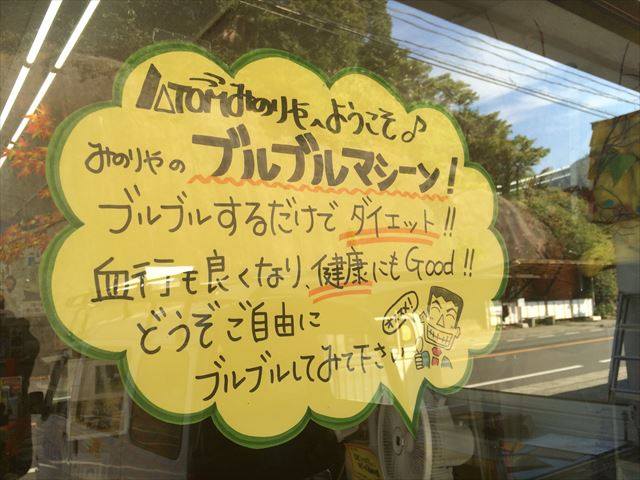 ATOMみのりやへようこそ♪
みのりやの ブルブルマシーン!
ブルブルするだけで ダイエット!!
血行も良くなり、健康にもGood!!
どうぞご自由に
ブルブルしてみて下さい